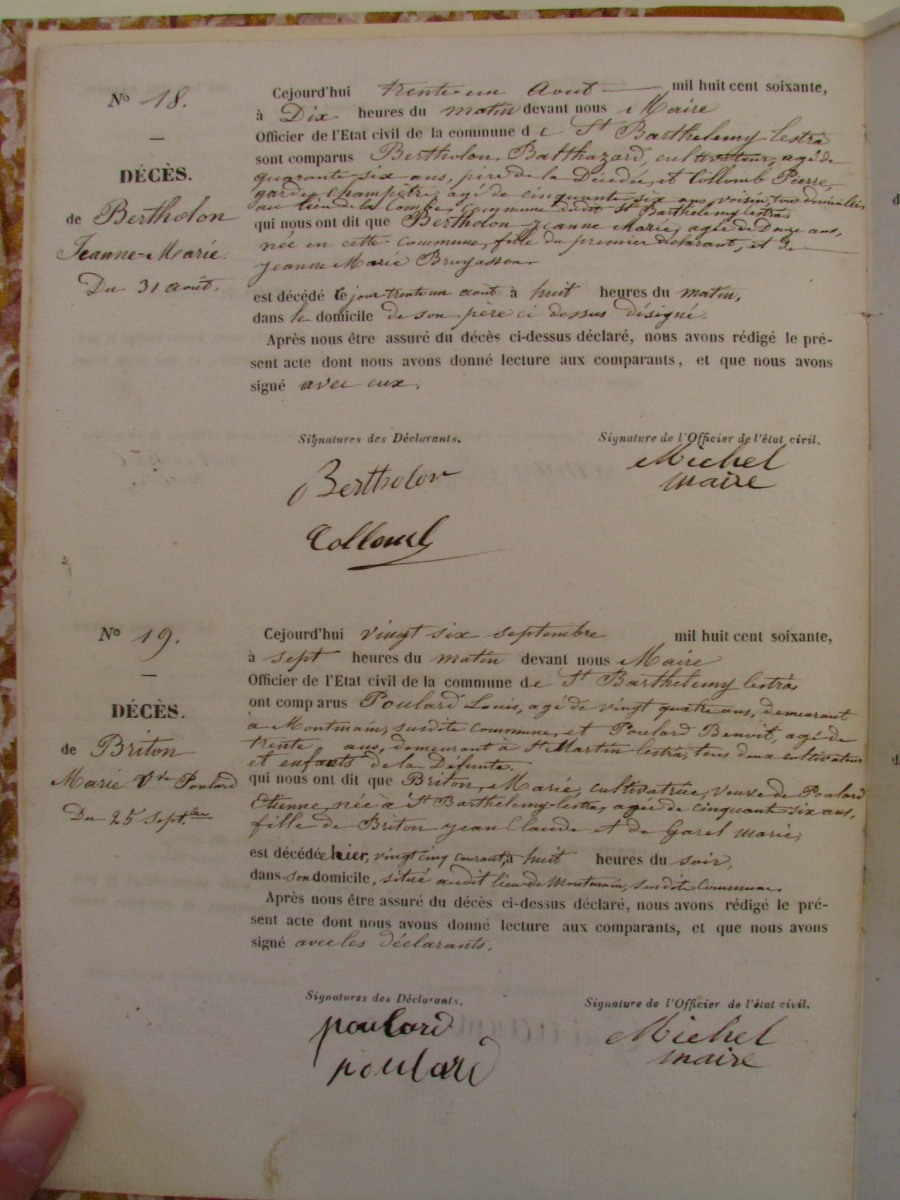 N° 18.
—
DÉCÈS.
de Bertholon
Jeanne-Marie.
Du 31 août.
Cejourd'hui trente-un Août — mil huit cent soixante,
à Dix heures du matin devant nous Maire
Officier de l'Etat civil de la commune de St Barthelemy lestra
sont comparus Bertholon Balthazard, cultivateur, agé de
quarante six ans, père de la Décédée, et Collomb Pierre
garde champêtre, agé de cinquante six ans, voisin, tous domiciliés
au lieu de la Combe, commune dudit St Barthelemy lestra
qui nous ont dit que Bertholon Jeanne Marie, agée de Douze ans,
née en cette commune, fille du premier déclarant, et de
Jeanne Marie Bruyasson.
est décédé le jour trente un aout à huit heures du matin,
dans le domicile de son père ci dessus désigné.
Après nous être assuré du décès ci-dessus déclaré, nous avons rédigé le pré-
sent acte dont nous avons donné lecture aux comparants, et que nous avons
signé avec eux.
Signatures des Déclarants.
Signature de l'Officier de l'état civil.
Bertholon
Michel
maire
Collomb
N° 19.
—
DÉCÈS.
de Briton
Marie Vve Poulard
Du 25 Sept.bre
Cejourd'hui vingt six septembre mil huit cent soixante,
à sept heures du matin devant nous Maire
Officier de l'Etat civil de la commune de St Barthelemy lestras
ont comparus Poulard Louis, agé de vingt quatre ans, demeurant
à Montmain, susdite commune, et Poulard Benoit, agé de
trente ans, demeurant à St Martin lestra, tous deux cultivateurs
et enfants de la Défunte.
qui nous ont dit que Briton, Marie, cultivatrice, veuve de Polard
Etienne, née à St Barthelemy-lestra, agée de cinquante six ans,
fille de Briton Jean Claude et de Garel Marie,
est décédée hier, vingt cinq courant, à huit heures du soir,
dans son domicile, situé audit lieu de Montmain, susdite Commune.
Après nous être assuré du décès ci-dessus déclaré, nous avons rédigé le pré-
sent acte dont nous avons donné lecture aux comparants, et que nous avons
signé avec les déclarants.
Signatures des Déclarants.
Signature de l'Officier de l'état civil.
poulard
Michel
maire
poulard